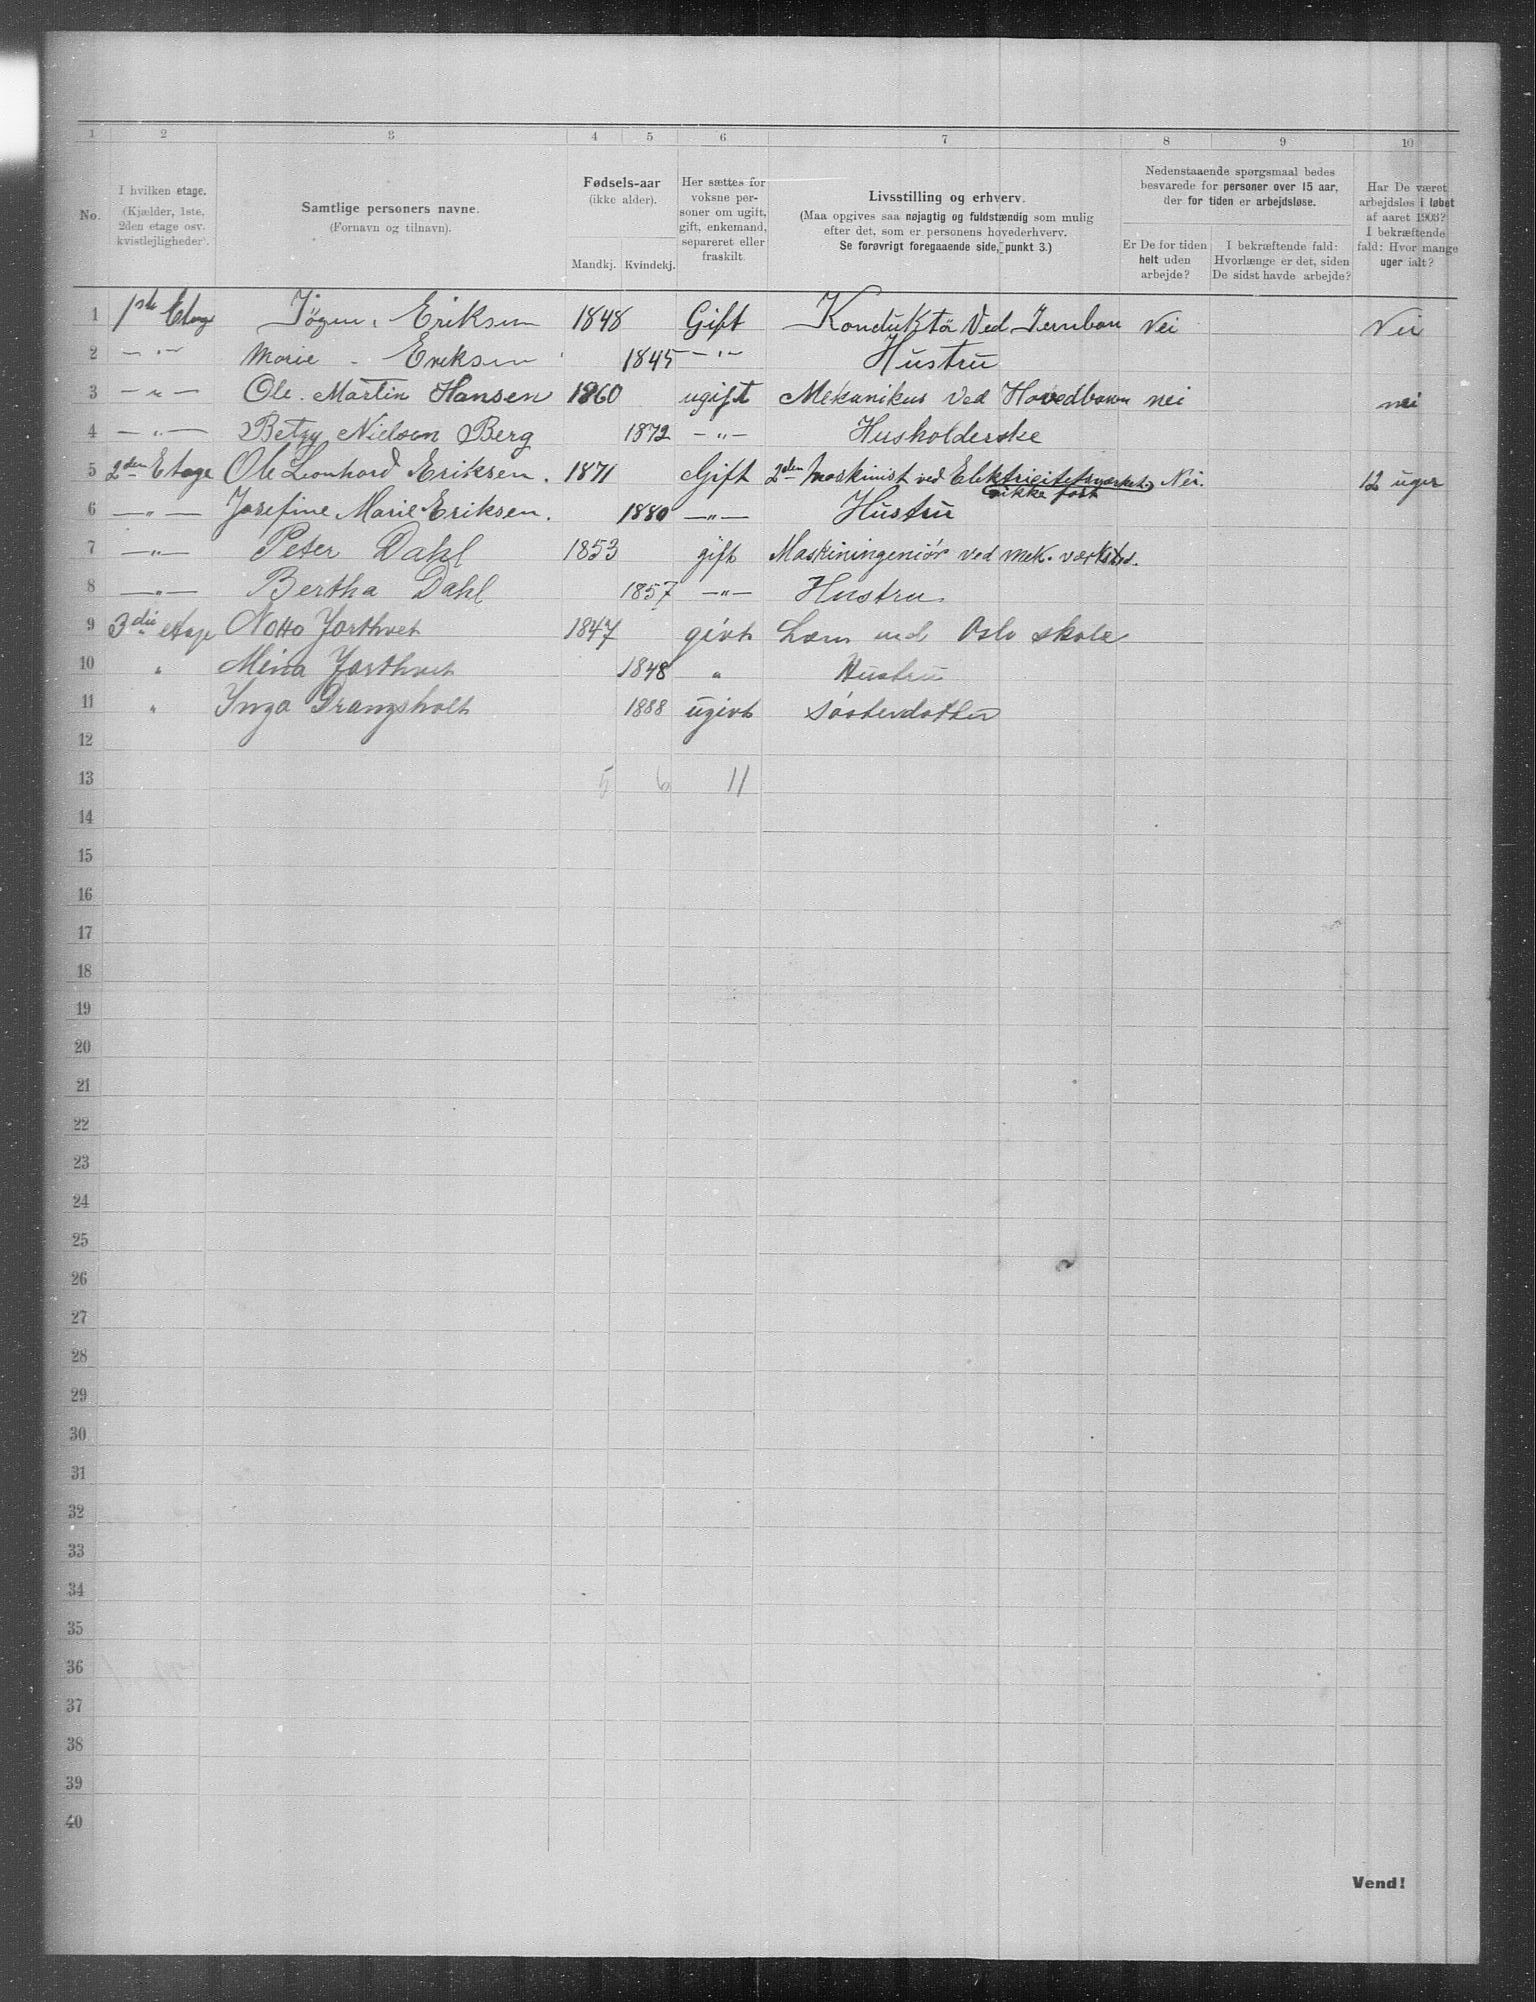 1 2 3 4 5 6 7 8 9 10
No.
I hvilken etage.
(Kjælder, 1ste,
2den etage osv.
kvistlejligheder).
Samtlige personers navne.
(Fornavn og tilnavn).
Fødsels-aar
(ikke alder).
Mandkj. Kvindekj.
Her sættes for
voksne per-
soner om ugift,
gift, enkemand,
separeret eller
fraskilt.
Livsstilling og erhverv.
(Maa opgives saa nøjagtig og fuldstændig som mulig
efter det, som er personens hovederhverv.
Se forøvrigt foregaaende side, punkt 3.)
Nedenstaaende spørgsmaal bedes
besvarede for personer over 15 aar,
der for tiden er arbejdsløse.
Er De for tiden
helt uden
arbejde?
I bekræftende fald:
Hvorlænge er det, siden
De sidst havde arbejde?
Har De været
arbejdsløs i løbet
af aaret 1903?
I bekræftende
fald: Hvor mange
uger ialt?
1 1ste Etage Jøgen. Eriksen 1848 Gift Konduktö Ved Jernban Nei Nei
2 —"— Marie - Eriksen 1845 —"— Hustru
3 —"— Ole. Martin Hansen 1860 ugift Mekanikus Ved Hovedbanen nei nei
4 —"— Betzy Nielsen Berg 1872 —"— Husholderske
5 2den Etage Ole Leonhard Eriksen. 1871 Gift 2den Maskinist ved Elektricitetsværket Nei. 12 uger
ikke fast
6 —"— Josefine Marie Eriksen. 1880 —"— Hustru
7 —"— Peter Dahl 1853 gift Maskiningeniör ved mek. værksted.
8 —"— Bertha Dahl 1857 —"— Hustru
9 3die etage Notto Jorthvet 1847 givt Lærer ved Oslo skole
10 " Mina Jorthvet 1848 " Hustru
11 " Inga Drangsholt 1888 ugivt söosterdatter
12
13 5 6 11
14
15
16
17
18
19
20
21
22
23
24
25
26
27
28
29
30
31
32
33
34
35
36
37
38
39
40
Vend!